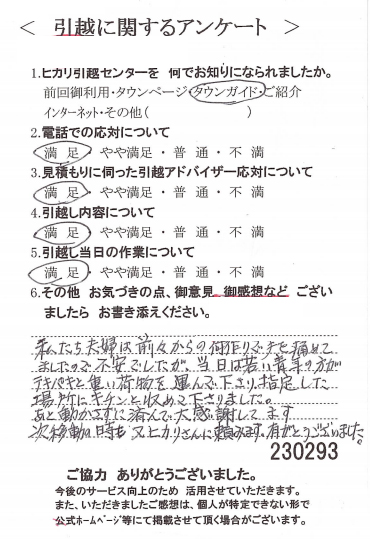 ＜ 引越に関するアンケート ＞
1.ヒカリ引越センターを 何でお知りになられましたか。
前回御利用・タウンページ・タウンガイド・ご紹介
インターネット・その他( )
2.電話での応対について
満 足 ・ やや満足 ・ 普 通 ・ 不 満
3.見積もりに伺った引越アドバイザー応対について
満 足 ・ やや満足 ・ 普 通 ・ 不 満
4.引越し内容について
満 足 ・ やや満足 ・ 普 通 ・ 不 満
5.引越し当日の作業について
満 足 ・ やや満足 ・ 普 通 ・ 不 満
6.その他 お気づきの点、御意見 御感想など ござい
ましたら お書き添えください。
私たち夫婦は前々からの荷作りで手を痛めて
ましたので不安でしたが、当日は若い青年の方が
テキパキと重い荷物を運んで下さり、指定した
場所にキチンと収めて下さりました。
あと動かさずに済んで大感謝してます
次移動の時も又ヒカリさんに頼みます。有がとうございました。
230293
ご協力 ありがとうございました。
今後のサービス向上のため 活用させていただきます。
また、いただきましたご感想は、個人が特定できない形で
公式ホームページ等にて掲載させて頂く場合がございます。